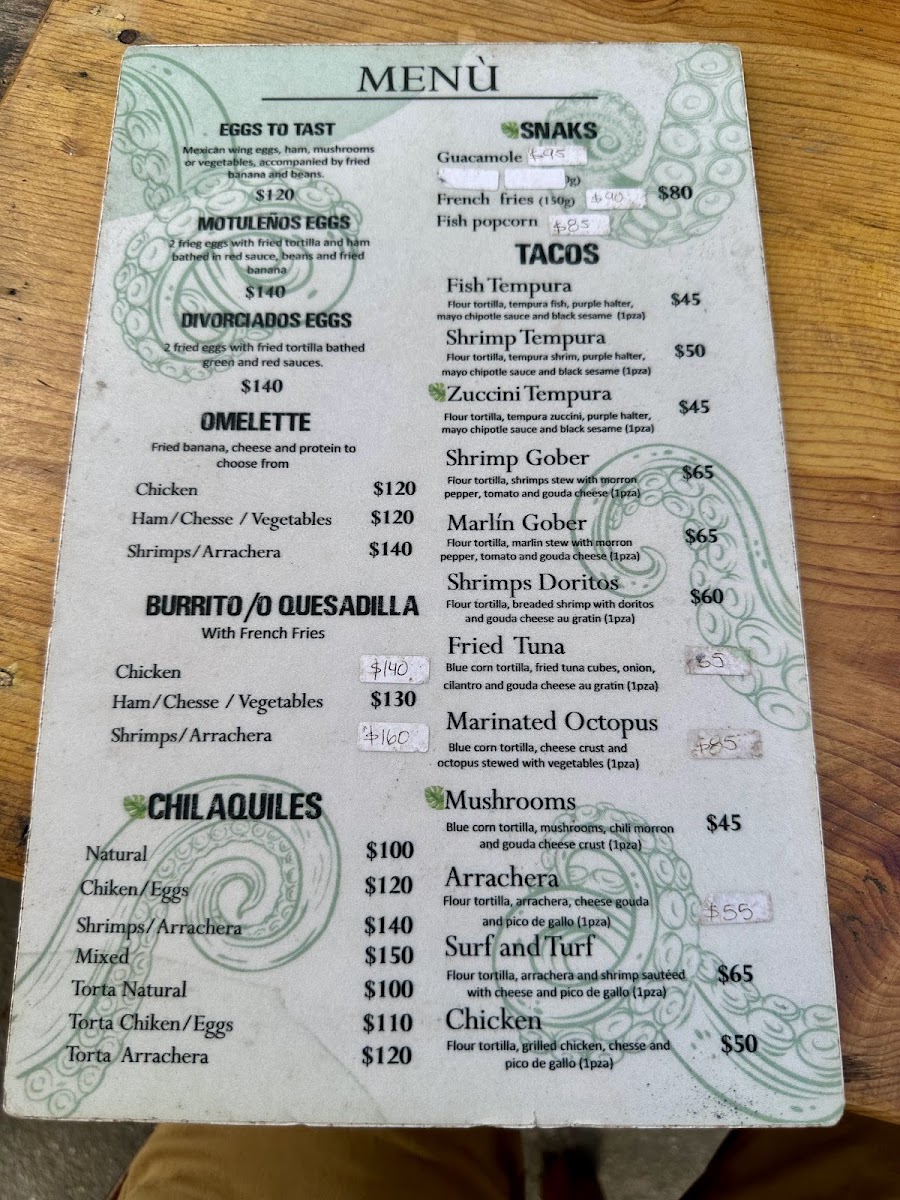 MENÙ
EGGS TO TAST
Mexican wing eggs, ham, mushrooms
or vegetables, accompanied by fried
banana and beans.
$120
MOTULEÑOS EGGS
2 frieg eggs with fried tortilla and ham
bathed in red sauce, beans and fried
banana
$140
DIVORCIADOS EGGS
2 fried eggs with fried tortilla bathed
green and red sauces.
$140
OMELETTE
Fried banana, cheese and protein to
choose from
Chicken $120
Ham/Chesse / Vegetables $120
Shrimps/Arrachera $140
BURRITO /O QUESADILLA
With French Fries
Chicken $140
Ham/Chesse / Vegetables $130
Shrimps/Arrachera $160
CHILAQUILES
Natural $100
Chiken/Eggs $120
Shrimps/Arrachera $140
Mixed $150
Torta Natural $100
Torta Chiken/Eggs $110
Torta Arrachera $120
SNAKS
Guacamole $95
French fries (150g) $90 $80
Fish popcorn $85
TACOS
Fish Tempura $45
Flour tortilla, tempura fish, purple halter,
mayo chipotle sauce and black sesame (1pza)
Shrimp Tempura $50
Flour tortilla, tempura shrim, purple halter,
mayo chipotle sauce and black sesame (1pza)
Zuccini Tempura $45
Flour tortilla, tempura zuccini, purple halter,
mayo chipotle sauce and black sesame (1pza)
Shrimp Gober $65
Flour tortilla, shrimps stew with morron
pepper, tomato and gouda cheese (1pza)
Marlín Gober $65
Flour tortilla, marlin stew with morron
pepper, tomato and gouda cheese (1pza)
Shrimps Doritos $60
Flour tortilla, breaded shrimp with doritos
and gouda cheese au gratin (1pza)
Fried Tuna
Blue corn tortilla, fried tuna cubes, onion,
cilantro and gouda cheese au gratin (1pza)
Marinated Octopus $85
Blue corn tortilla, cheese crust and
octopus stewed with vegetables (1pza)
Mushrooms $45
Blue corn tortilla, mushrooms, chili morron
and gouda cheese crust (1pza)
Arrachera $55
Flour tortilla, arrachera, cheese gouda
and pico de gallo (1pza)
Surf and Turf $65
Flour tortilla, arrachera and shrimp sautéed
with cheese and pico de gallo (1pza)
Chicken $50
Flour tortilla, grilled chicken, chesse and
pico de gallo (1pza)